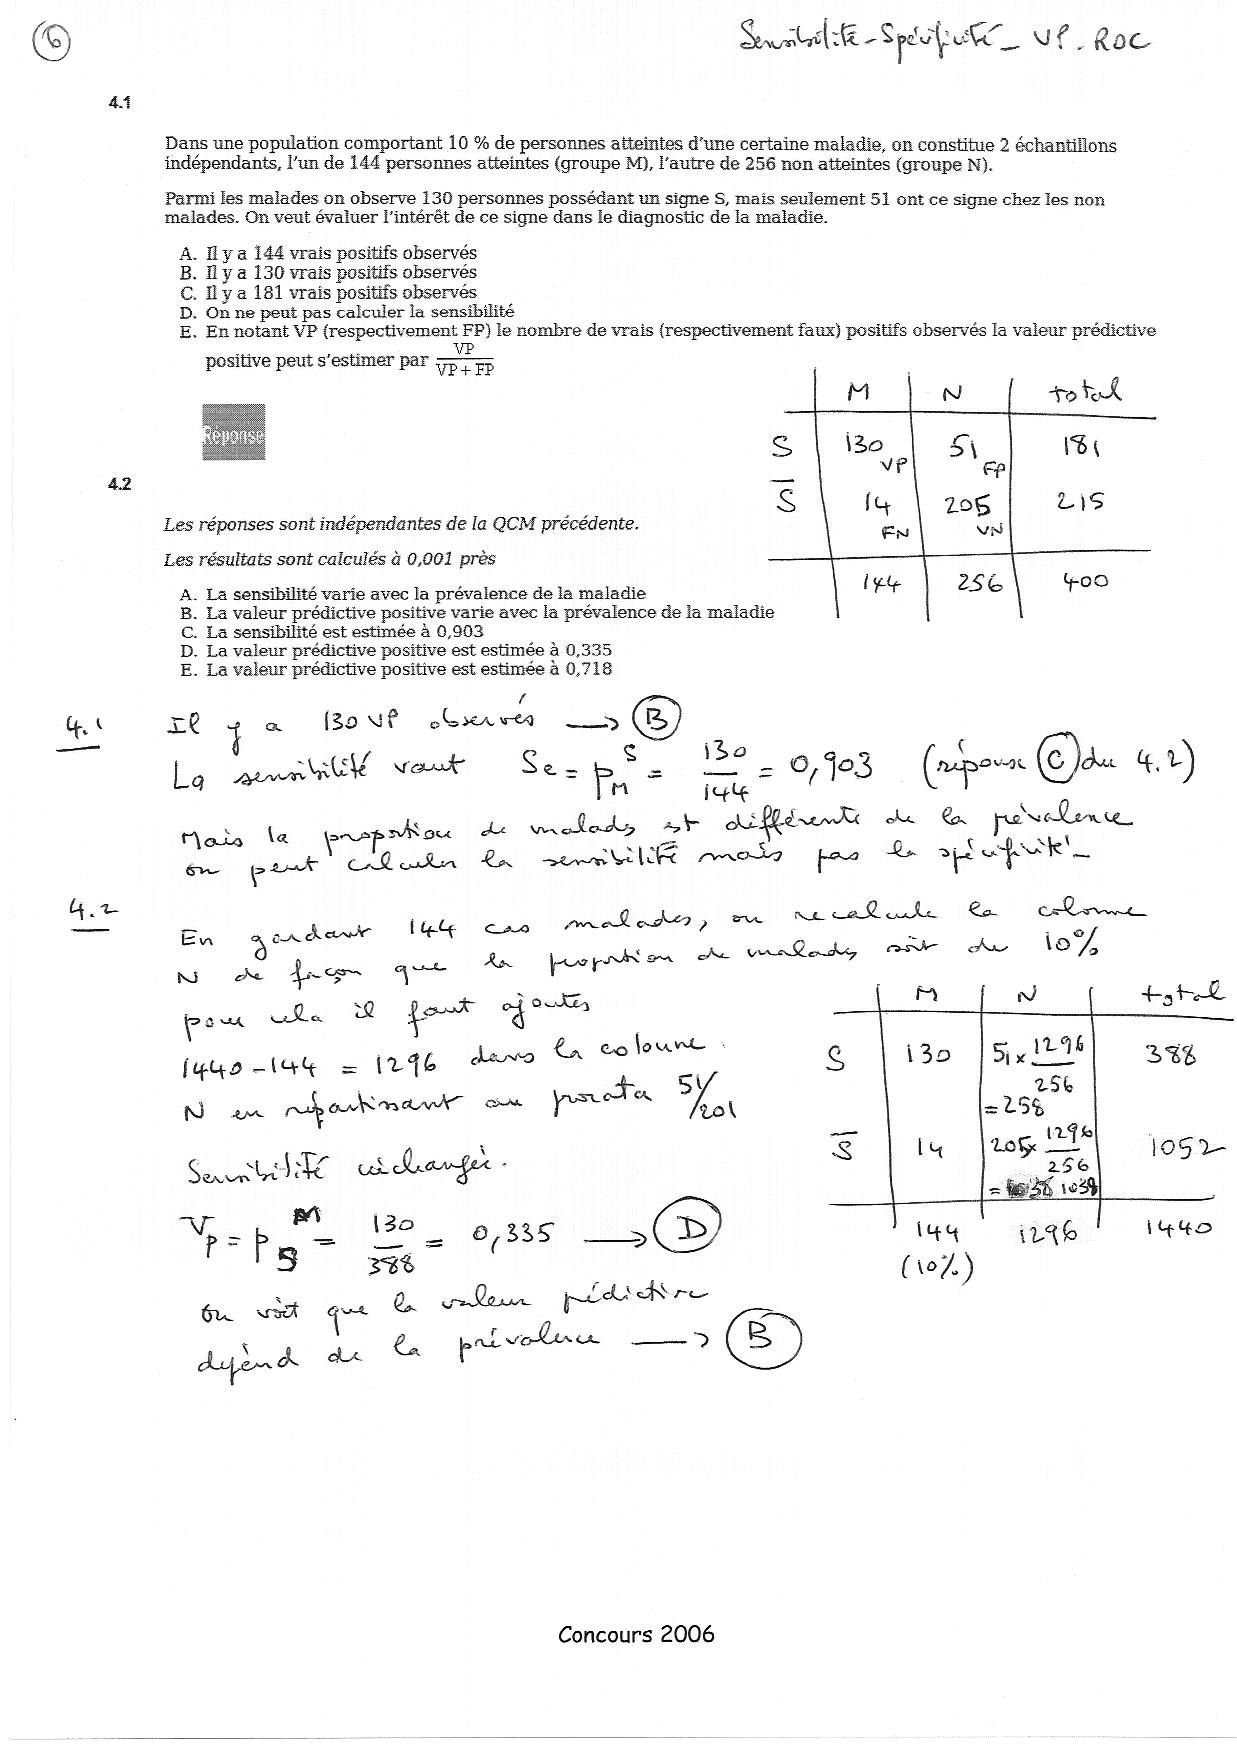 6
Sensibilité - Spécificité - VP - ROC
4.1
Dans une population comportant 10 % de personnes atteintes d'une certaine maladie, on constitue 2 échantillons
indépendants, l'un de 144 personnes atteintes (groupe M), l'autre de 256 non atteintes (groupe N).
Parmi les malades on observe 130 personnes possédant un signe S, mais seulement 51 ont ce signe chez les non
malades. On veut évaluer l'intérêt de ce signe dans le diagnostic de la maladie.
A. Il y a 144 vrais positifs observés
B. Il y a 130 vrais positifs observés
C. Il y a 181 vrais positifs observés
D. On ne peut pas calculer la sensibilité
E. En notant VP (respectivement FP) le nombre de vrais (respectivement faux) positifs observés la valeur prédictive
positive peut s'estimer par VP / VP + FP
Réponse
M N total
S 130 VP 51 FP 181
S̅ 14 FN 205 VN 215
144 256 400
4.2
Les réponses sont indépendantes de la QCM précédente.
Les résultats sont calculés à 0,001 près
A. La sensibilité varie avec la prévalence de la maladie
B. La valeur prédictive positive varie avec la prévalence de la maladie
C. La sensibilité est estimée à 0,903
D. La valeur prédictive positive est estimée à 0,335
E. La valeur prédictive positive est estimée à 0,718
4.1 Il y a 130 VP observés → B
La sensibilité vaut Se = p_M^S = 130/144 = 0,903 (réponse C du 4.2)
Mais la proportion de malades est différente de la prévalence
on peut calculer la sensibilité mais pas la spécificité -
4.2
En gardant 144 cas malades, on recalcule la colonne
N de façon que la proportion de malades soit de 10%
pour cela il faut ajouter
1440 - 144 = 1296 dans la colonne
N en répartissant au prorata 51/201
Sensibilité inchangée.
M N total
S 130 51 x 1296/256 = 258 388
S̅ 14 205 x 1296/256 = 1038 1052
144 1296 1440
(10%)
Vp = p_S^M = 130/388 = 0,335 → D
on voit que la valeur prédictive
dépend de la prévalence → B
Concours 2006